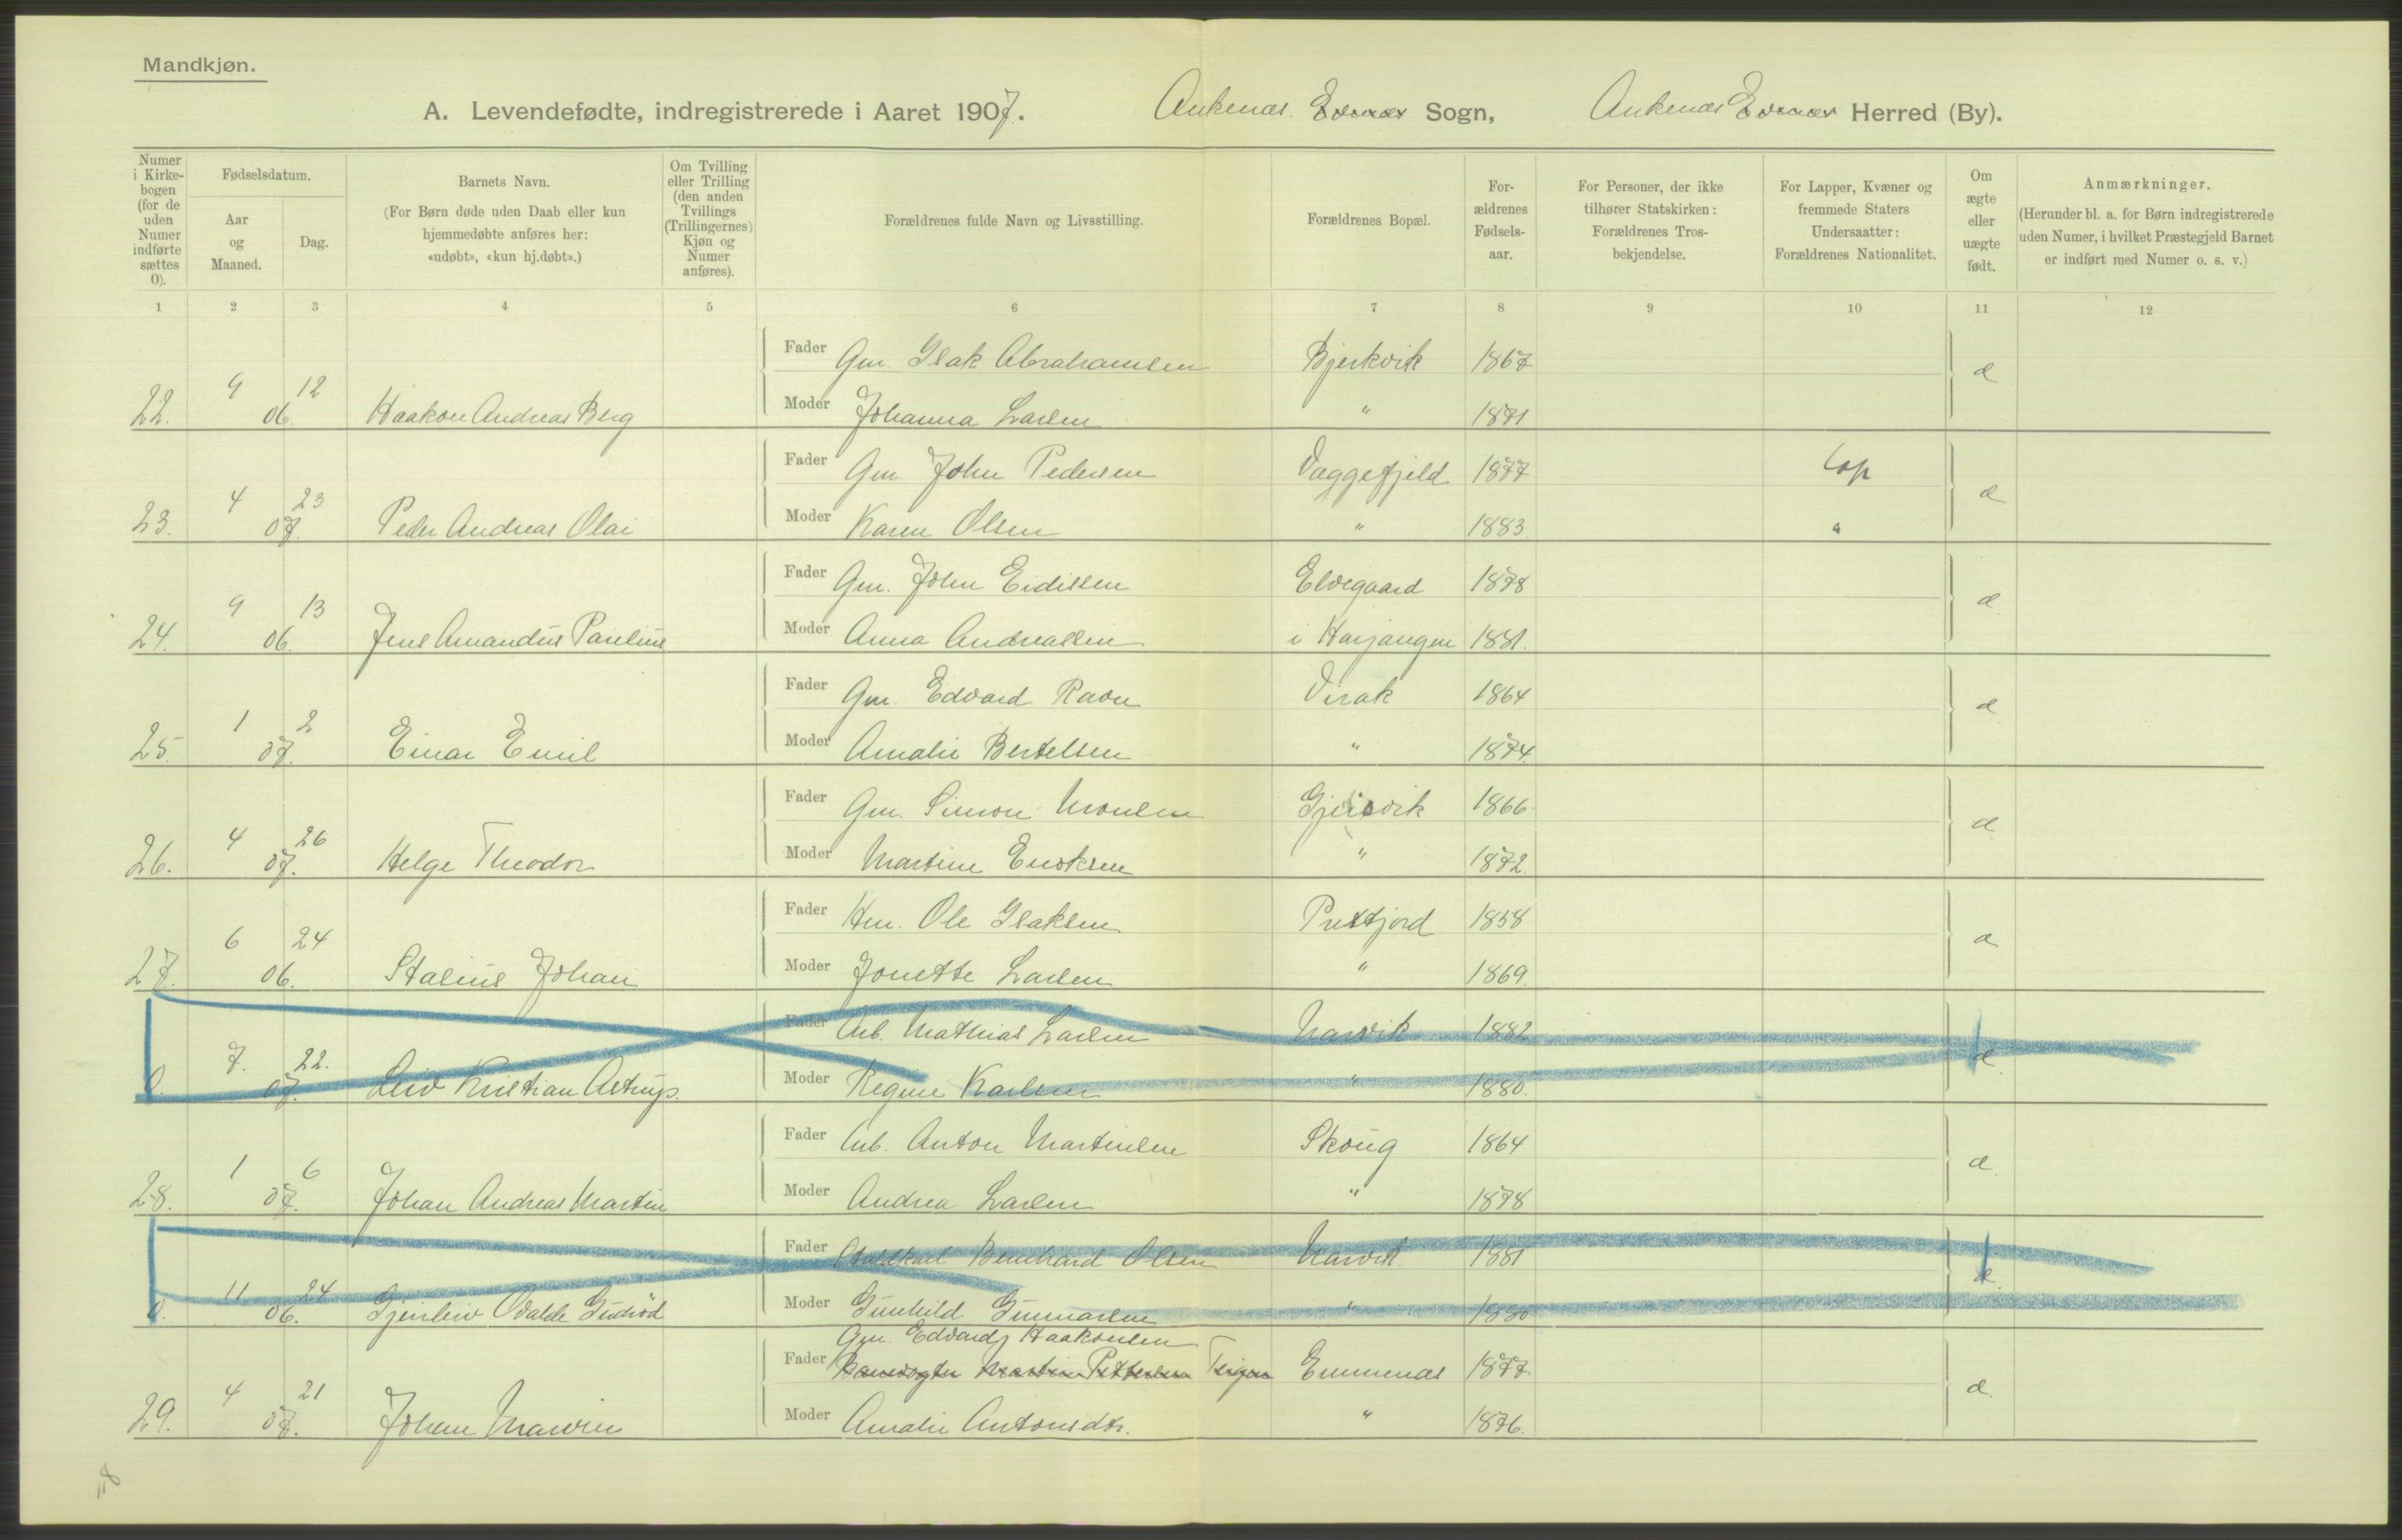 Mandkjøn.
A. Levendefødte, indregistrerede i Aaret 1907. Ankenæs Sogn, Ankenæs Herred (By).
Numer i Kirkebogen (for de uden Numer indførte sættes 0).
Fødselsdatum.
Aar og Maaned.
Dag.
Barnets Navn.
(For Børn døde uden Daab eller kun hjemmedøbte anføres her: «udøbt», «kun hj.døbt».)
Om Tvilling eller Trilling (den anden Tvillings (Trillingernes) Kjøn og Numer anføres).
Forældrenes fulde Navn og Livsstilling.
Forældrenes Bopæl.
Forældrenes Fødselsaar.
For Personer, der ikke tilhører Statskirken: Forældrenes Trosbekjendelse.
For Lapper, Kvæner og fremmede Staters Undersaatter: Forældrenes Nationalitet.
Om ægte eller uægte født.
Anmærkninger.
(Herunder bl. a. for Børn indregistrerede uden Numer, i hvilket Præstegjeld Barnet er indført med Numer o. s. v.)
1 2 3 4 5 6 7 8 9 10 11 12
Fader Gm. Isak Abrahamsen Bjerkvik 1867
22. 9 06. 12 Haakon Andreas Berg Moder Johanna Larsen " 1871 æ
Fader Gm. John Pedersen Vaggefjeld 1877 Lap
23. 4 07. 23 Peder Andreas Olai Moder Karen Olsen " 1883. " æ
Fader Gm. John Eidissen Elvegaard 1878
24. 9 06. 13 Jens Amandus Paulius Moder Anna Andreassen i Harjangen 1881. æ
Fader Gm. Edvard Ravn Virak 1864
25. 1 07. 2 Einar Emil Moder Amalie Bertelsen " 1874. æ
Fader Gm. Simon Monsen 1866
26. 4 07. 26 Helge Theodor Moder Martine Enoksen " 1872. æ
Fader Hm. Ole Isaksen Prestjord 1858
27. 6 06. 24 Stalius Johan Moder Jonette Larsen " 1869. æ
Fader Arb. Mathias Larsen Narvik 1882
0. 7. 07. 22. Leiv Kristian Astrup. Moder Regine Karlsen " 1880. æ
Fader Arb. Anton Martinsen Skoug 1864
28. 1 07. 6 Johan Andreas Martin Moder Andrea Larsen " 1878 æ
Fader Bernhard Olsen Narvik. 1881
0. 11 06. 24 Gjerleiv Odalde Gudrød Moder Gunhild Gunnarsen " 1880 æ
Gm. Edvard Haakonsen
Fader Banevogter Martin Pettersen Emmenæs 1877
29. 4 07. 21 Johan Marvin Moder Amalie Antonsdtr. " 1876. æ